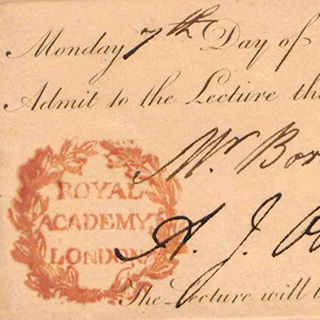 Monday 7th Day of
Admit to the Lecture th
Mr Bor
ROYAL
ACADEMY
LONDON
A. J.
The Lecture will